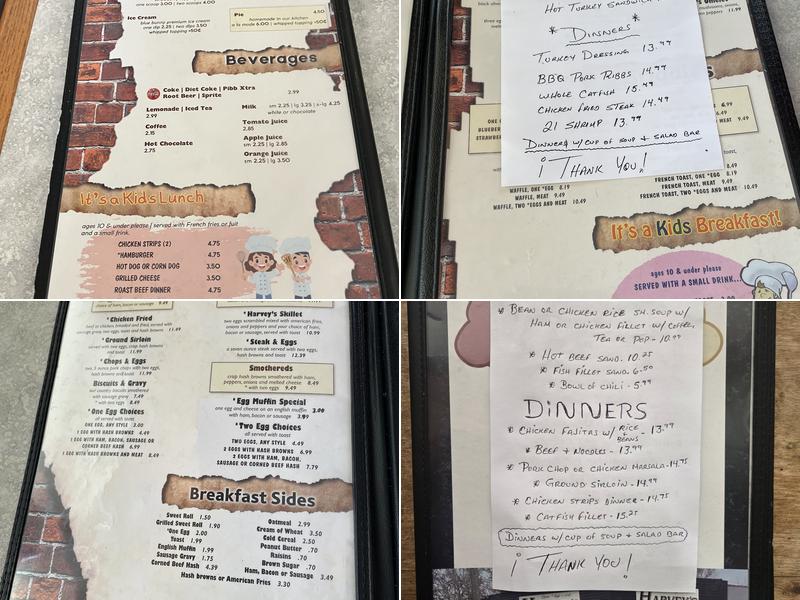 one scoop 3.00 | two scoops 4.00
Ice Cream
blue bunny premium ice cream
one dip 2.25 | two dips 3.50
whipped topping +50¢
4.50
Pie
homemade in our kitchen
a la mode 6.00 | whipped topping +50¢
Beverages
Coke | Diet Coke | Pibb Xtra
Root Beer | Sprite 2.99
Lemonade | Iced Tea
2.99
Coffee
2.15
Hot Chocolate
2.75
Milk sm 2.25 | lg 3.25 | x-lg 4.25
white or chocolate
Tomato Juice
2.85
Apple Juice
sm 2.25 | lg 2.85
Orange Juice
sm 2.25 | lg 3.50
It's a Kids Lunch
ages 10 & under please | served with French fries or fuit
and a small frink.
CHICKEN STRIPS (2) 4.75
*HAMBURGER 4.75
HOT DOG OR CORN DOG 3.50
GRILLED CHEESE 3.50
ROAST BEEF DINNER 4.75
HOT TURKEY SANDWICH
* DINNERS *
TURKEY DRESSING 13.99
BBQ PORK RIBBS 14.99
WHOLE CATFISH 15.49
CHICKEN FRIED STEAK 14.49
21 SHRIMP 13.99
DINNERS W/CUP OF SOUP & SALAD BAR
¡ THANK YOU!
11.99
6.99
9.49
8.49
WAFFLE, ONE *EGG 8.19
WAFFLE, MEAT 9.49
WAFFLE, TWO *EGGS AND MEAT 10.49
FRENCH TOAST, ONE *EGG 8.49
FRENCH TOAST, MEAT 9.49
FRENCH TOAST, TWO *EGGS AND MEAT 10.49
It's a Kids Breakfast!
ages 10 & under please
SERVED WITH A SMALL DRINK...
choice of ham, bacon or sausage 9.49
* Chicken Fried
beef or chicken breaded and fried, served with
sausage gravy, two eggs, toast and hash browns 11.49
* Ground Sirloin
served with two eggs, crisp hash browns
and toast 11.99
* Chops & Eggs
two 5 ounce pork chops with two eggs,
hash browns and toast 11.99
Biscuits & Gravy
our country biscuits smothered
with sausage gravy 7.49
* with two eggs 8.49
*One Egg Choices
all served with toast
ONE EGG, ANY STYLE 3.00
1 EGG WITH HASH BROWNS 4.49
1 EGG WITH HAM, BACON, SAUSAGE OR
CORNED BEEF HASH 6.99
1 EGG WITH HASH BROWNS AND MEAT 8.49
* Harvey's Skillet
two eggs scrambled mixed with american fries,
onions and peppers and your choice of ham,
bacon or sausage, served with toast 10.99
* Steak & Eggs
a seven ounce steak served with two eggs,
hash browns and toast 12.39
Smothereds
crisp hash browns smothered with ham,
peppers, onions and melted cheese 8.49
* with two eggs 9.49
*Egg Muffin Special
one egg and cheese on an english muffin 3.00
with ham, bacon or sausage 3.99
*Two Egg Choices
all served with toast
TWO EGGS, ANY STYLE 4.49
2 EGGS WITH HASH BROWNS 6.99
2 EGGS WITH HAM, BACON,
SAUSAGE OR CORNED BEEF HASH 7.79
Breakfast Sides
Sweet Roll 1.50
Grilled Sweet Roll 1.90
*One Egg 2.00
Toast 1.99
English Muffin 1.99
Sausage Gravy 1.75
Corned Beef Hash 4.39
Oatmeal 2.99
Cream of Wheat 3.50
Cold Cereal 2.50
Peanut Butter .70
Raisins .70
Brown Sugar .70
Ham, Bacon or Sausage 3.49
Hash browns or American Fries 3.30
* BEAN OR CHICKEN RICE SM. SOUP W/
HAM OR CHICKEN FILLET W/ COFFEE,
TEA OR POP - 10.99
* HOT BEEF SAND. 10.25
* FISH FILLET SAND. 6.50
* BOWL OF CHILI - 5.99
DINNERS
* CHICKEN FAJITAS W/ RICE & BEANS - 13.99
* BEEF & NOODLES - 13.99
* PORK CHOP OR CHICKEN MARSALA - 14.75
* GROUND SIRLOIN - 14.99
* CHICKEN STRIPS DINNER - 14.75
* CATFISH FILLET - 15.25
DINNERS W/ CUP OF SOUP & SALAD BAR
¡ THANK YOU!
HARVEY'S